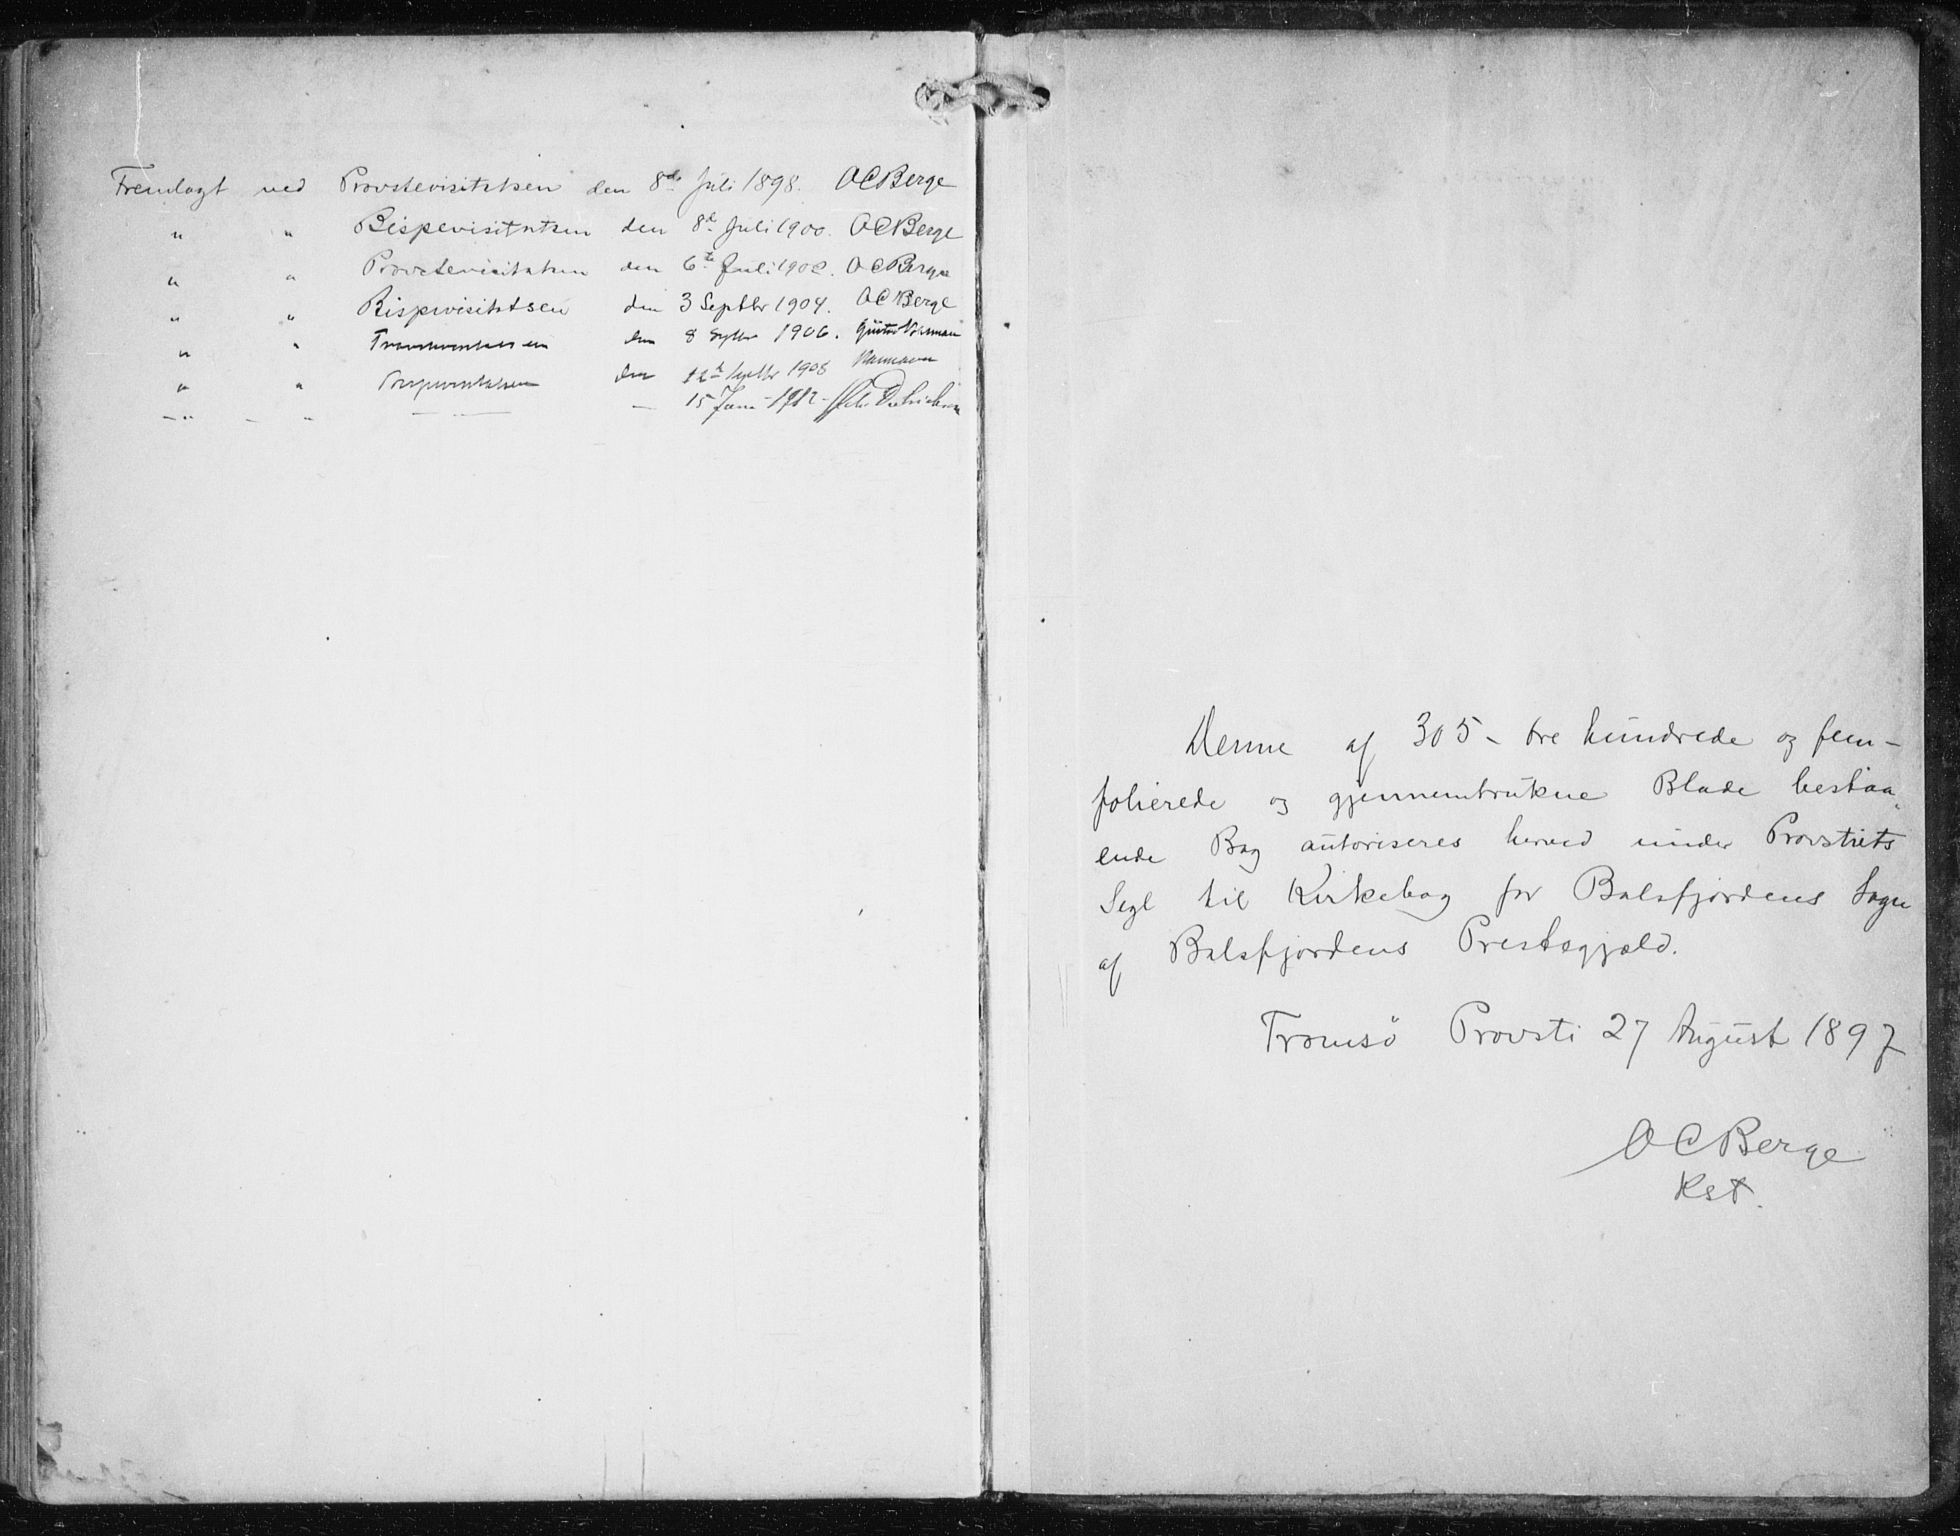 Fremlagt ved Provstevisitatsen den 8de Juli 1898. OCBerge
" " Bispevisitatsen den 8d Juli 1900. OCBerge
" " Provstevisitatsen den 6te Juli 1902. OCBerge
" " Bispevisitatsen den 3 Septbr 1904. OCBerge
" " den 8 Septbr 1906.
" " Bispevisitatsen den 12te Septbr 1908
-"- - " — — — 15 Juni 1912
Denne af 305 - tre hundrede og fem -
folierede og gjennemtrukne Blade bestaa-
ende Bog autoriseres herved under Provstiets
Segl til Kirkebog for Balsfjordens Sogn
af Balsfjordens Prestegjæld.
Tromsö Provsti 27 August 1897
OCBerge
Kst.